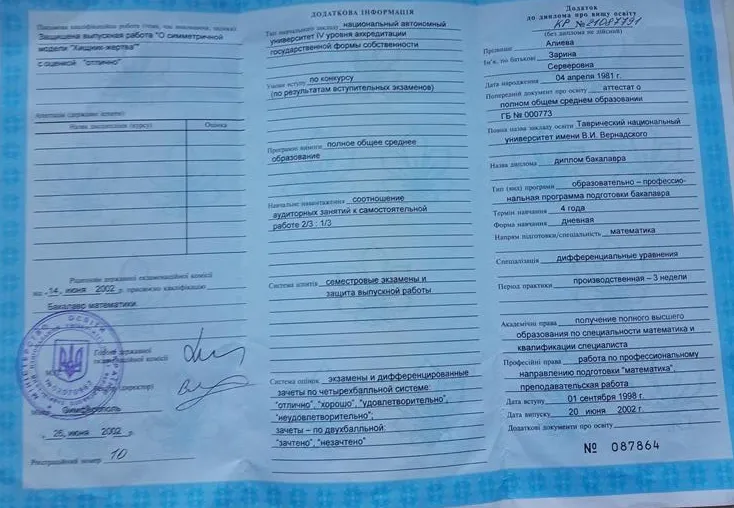 Защищена выпускная работа "О симметричной
модели "Хищник-жертва""
с оценкой "отлично"
Атестації (державні іспити)
Назва дисципліни (курсу)
Оцінка
Рішенням державної екзаменаційної комісії
14, июня 2002 р. присвоєно кваліфікацію
Бакалавр математики
Голова державної
екзаменаційної комісії
Симферополь
25, июня 2002 р.
Реєстраційний номер 10
ДОДАТКОВА ІНФОРМАЦІЯ
Тип навчального закладу национальный автономный
университет IV уровня аккредитации
государственной формы собственности
Умови вступу по конкурсу
(по результатам вступительных экзаменов)
Програмні вимоги полное общее среднее
образование
Навчальне навантаження соотношение
аудиторных занятий к самостоятельной
работе 2/3 : 1/3
Система іспитів семестровые экзамены и
защита выпускной работы
Система оцінок экзамены и дифференцированные
зачеты по четырехбалльной системе:
"отлично", "хорошо", "удовлетворительно",
"неудовлетворительно";
зачеты – по двухбалльной:
"зачтено", "незачтено"
Додаток
до диплома про вищу освіту
КР №21087791
(без диплома не дійсний)
Прізвище Алиева
Ім'я, по батькові Зарина
Серверовна
Дата народження 04 апреля 1981 г.
Попередній документ про освіту аттестат о
полном общем среднем образовании
ГБ № 000773
Повна назва закладу освіти Таврический национальный
университет имени В.И. Вернадского
Назва диплома диплом бакалавра
Тип (вид) програми образовательно – профессио-
нальная программа подготовки бакалавра
Термін навчання 4 года
Форма навчання дневная
Напрям підготовки/спеціальність математика
Спеціалізація дифференциальные уравнения
Період практики производственная – 3 недели
Академічні права получение полного высшего
образования по специальности математика и
квалификации специалиста
Професійні права работа по профессиональному
направлению подготовки "математика",
преподавательская работа
Дата вступу 01 сентября 1998 г.
Дата випуску 20 июня 2002 г.
Додаткові документи про освіту
№ 087864